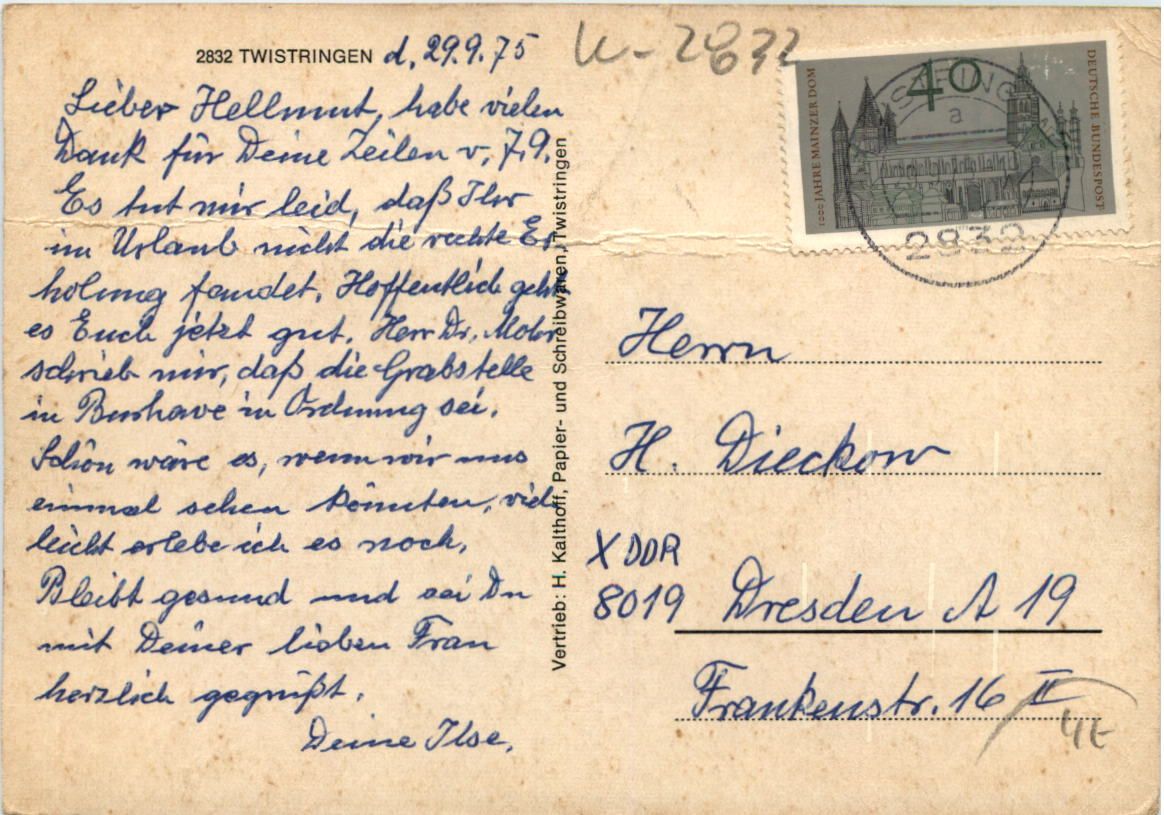 2832 TWISTRINGEN d. 29.9.75
Lieber Hellmut, habe vielen
Dank für Deine Zeilen v. 7.9.
Es tut mir leid, daß Ihr
im Urlaub nicht die rechte Er
holung fandet. Hoffentlich geht
es Euch jetzt gut. Herr Dr. Mohr
schrieb mir, daß die Grabstelle
in Burhave in Ordnung sei.
Schön wäre es, wenn wir uns
einmal sehen könnten, viel
leicht erlebe ich es noch.
Bleibt gesund und sei Du
mit Deiner lieben Frau
herzlich gegrüßt.
Deine Ilse.
Vertrieb: H. Kalthoff, Papier- und Schreibwaren, Twistringen
2832
1000 JAHRE MAINZER DOM
40
DEUTSCHE BUNDESPOST
a
2832
Herrn
H. Dieckow
X DDR
8019 Dresden A 19
Frankenstr. 16 II